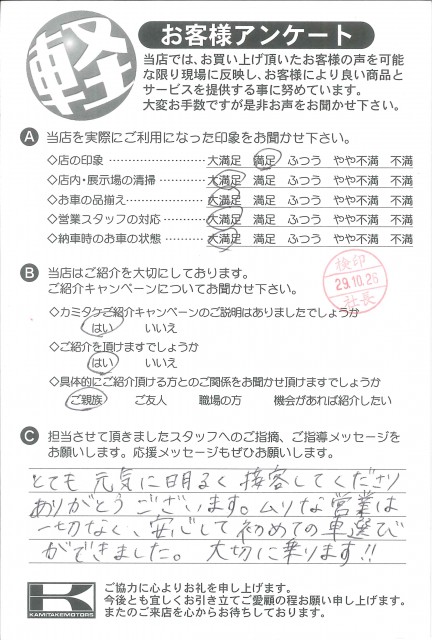 軽
お客様アンケート
当店では、お買い上げ頂いたお客様の声を可能
な限り現場に反映し、お客様により良い商品と
サービスを提供する事に努めています。
大変お手数ですが是非お声をお聞かせ下さい。
A 当店を実際にご利用になった印象をお聞かせ下さい。
◇店の印象 ……………………… 大満足 満足 ふつう やや不満 不満
◇店内・展示場の清掃 ………… 大満足 満足 ふつう やや不満 不満
◇お車の品揃え ………………… 大満足 満足 ふつう やや不満 不満
◇営業スタッフの対応 ………… 大満足 満足 ふつう やや不満 不満
◇納車時のお車の状態 ………… 大満足 満足 ふつう やや不満 不満
B 当店はご紹介を大切にしております。
ご紹介キャンペーンについてお聞かせ下さい。
検印
29.10.26
社長
◇カミタケご紹介キャンペーンのご説明はありましたでしょうか
はい いいえ
◇ご紹介を頂けますでしょうか
はい いいえ
◇具体的にご紹介頂ける方とのご関係をお聞かせ頂けますでしょうか
ご親族 ご友人 職場の方 機会があれば紹介したい
C 担当させて頂きましたスタッフへのご指摘、ご指導メッセージを
お願いします。応援メッセージもぜひお願いします。
とても 元気に明るく 接客してくださり
ありがとう ございます。ムリな営業は
一切なく、安心して初めての車選び
ができました。 大切に乗ります!!
K
KAMITAKEMOTORS
ご協力に心よりお礼を申し上げます。
今後とも宜しくお引き立てご愛顧の程お願い申し上げます。
またのご来店を心からお待ちしております。